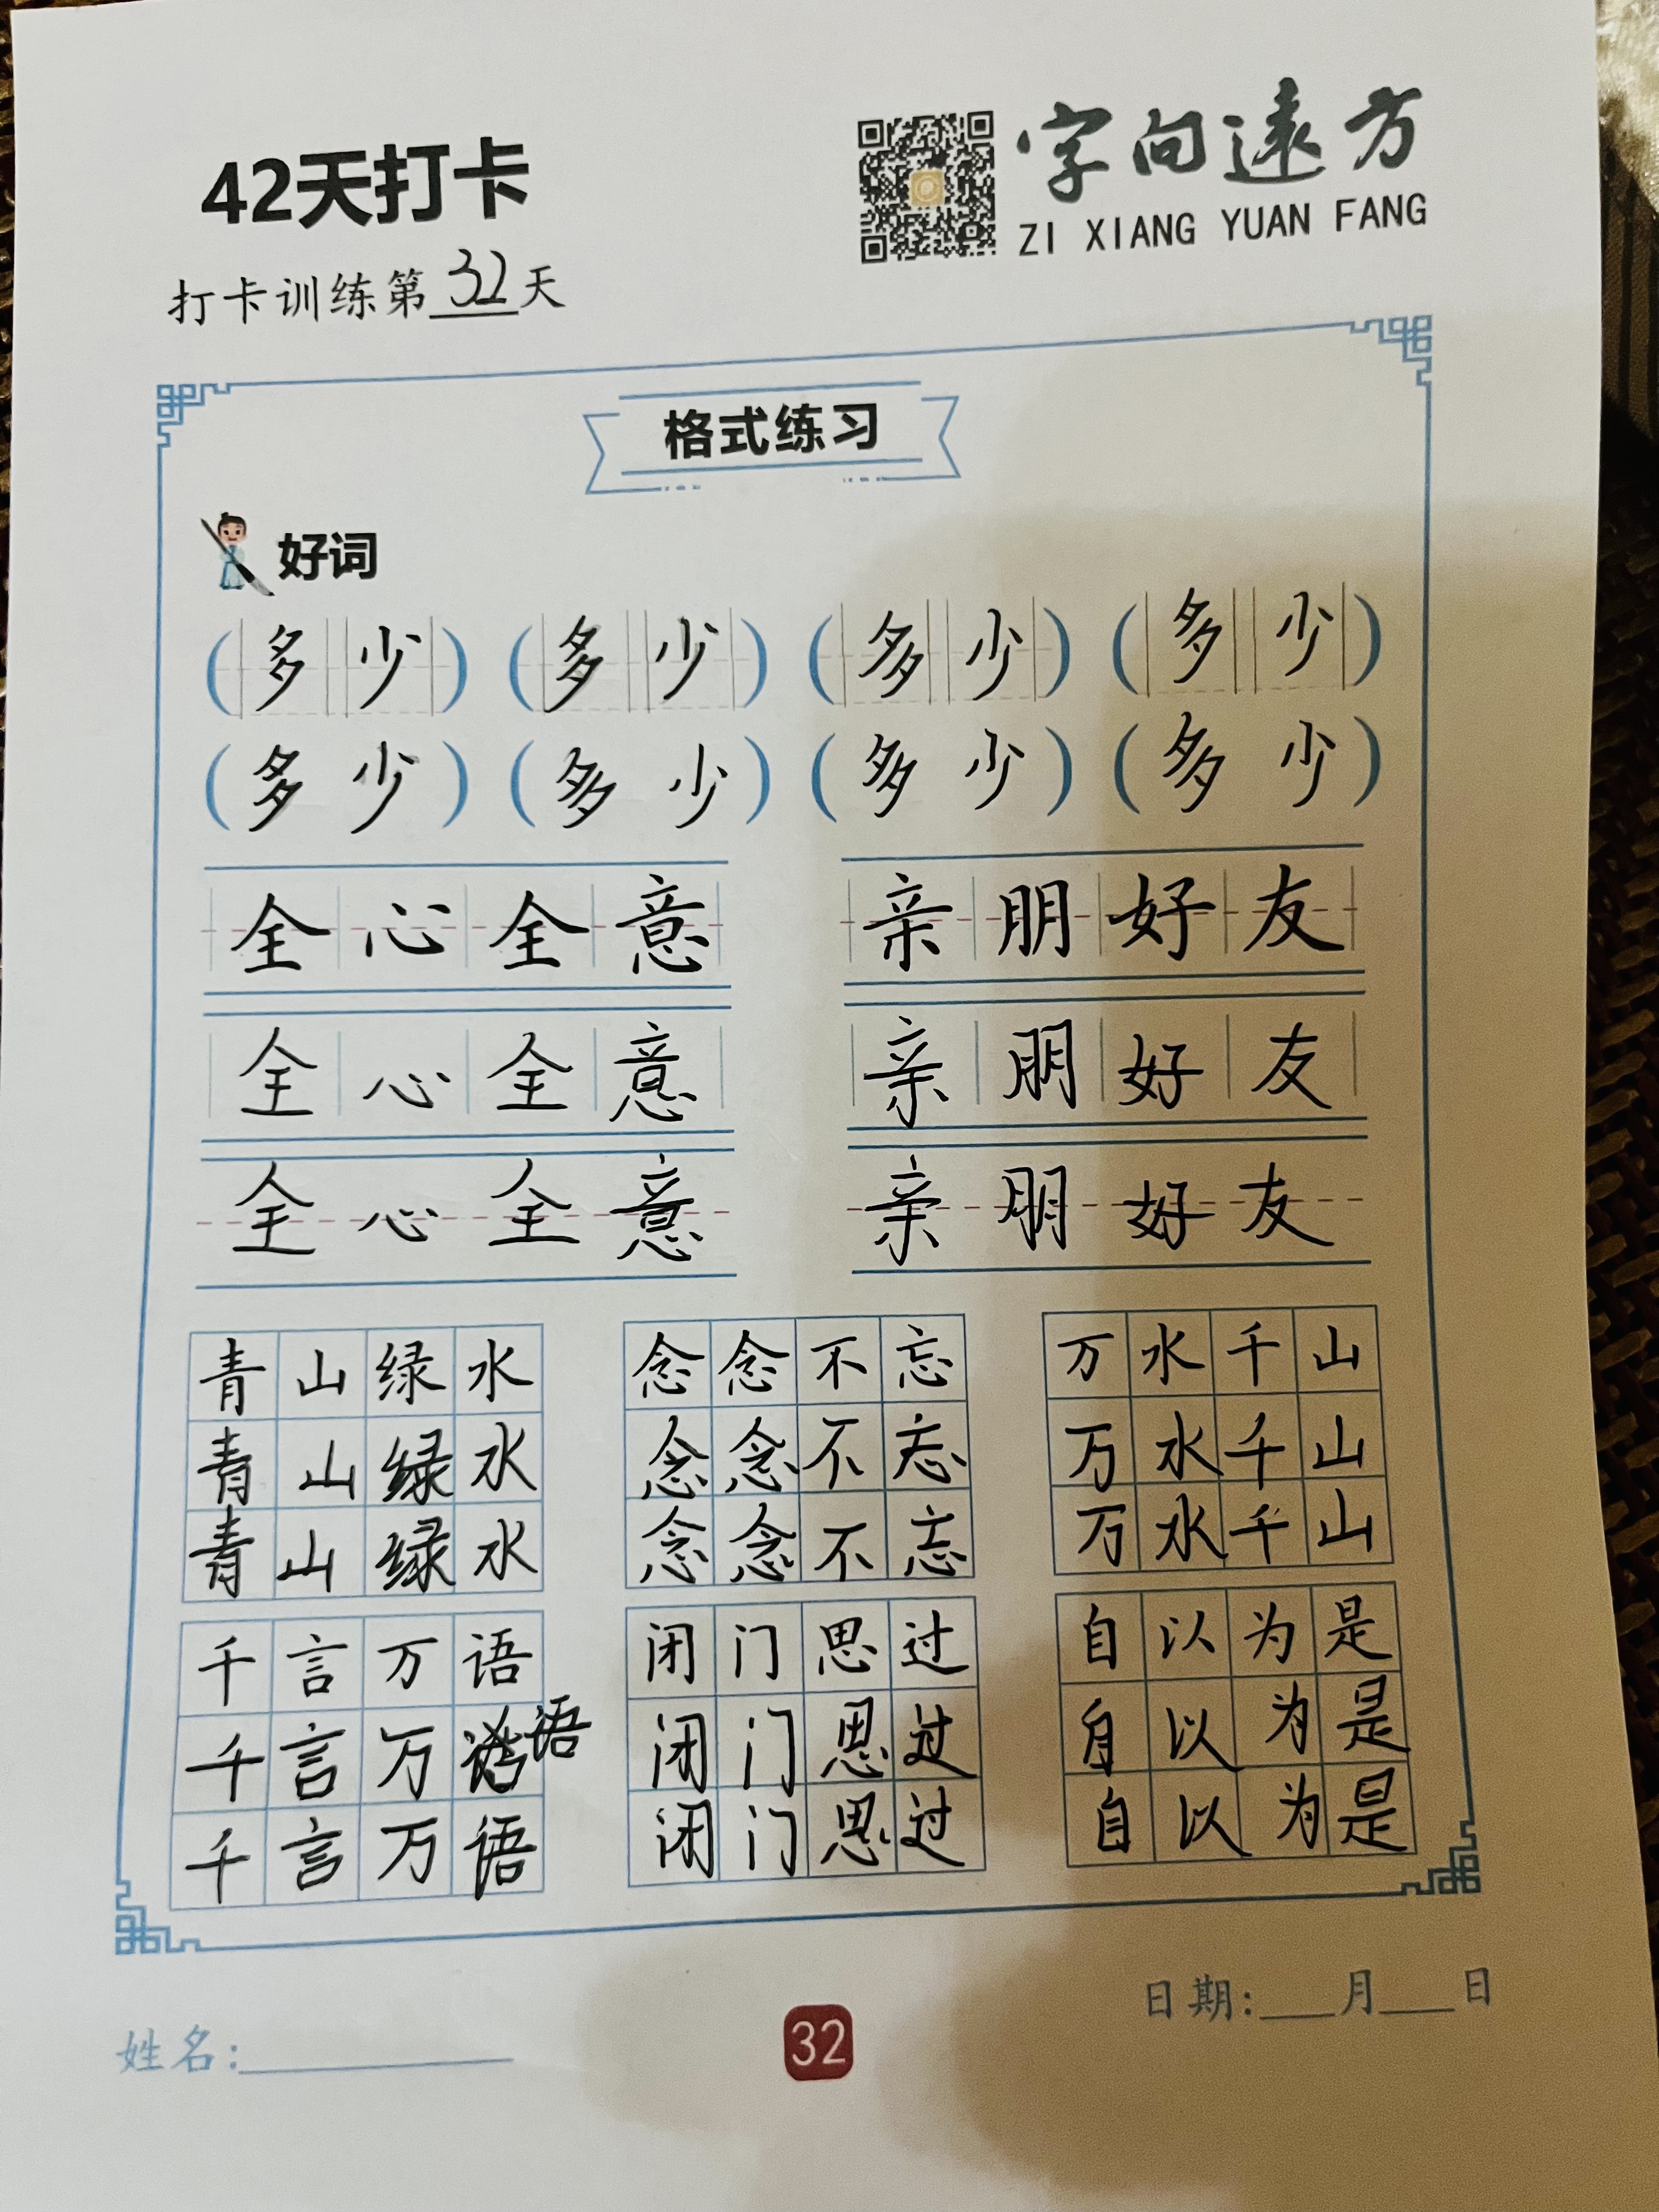 42天打卡
字向遠方
ZI XIANG YUAN FANG
打卡训练第32天
格式练习
好词
(多少) (多少) (多少) (多少)
(多少) (多少) (多少) (多少)
全心全意 亲朋好友
全心全意 亲朋好友
全心全意 亲朋好友
青山绿水 念念不忘 万水千山
青山绿水 念念不忘 万水千山
青山绿水 念念不忘 万水千山
千言万语 闭门思过 自以为是
千言万语 闭门思过 自以为是
千言万语 闭门思过 自以为是
日期:___月___日
姓名:___
32